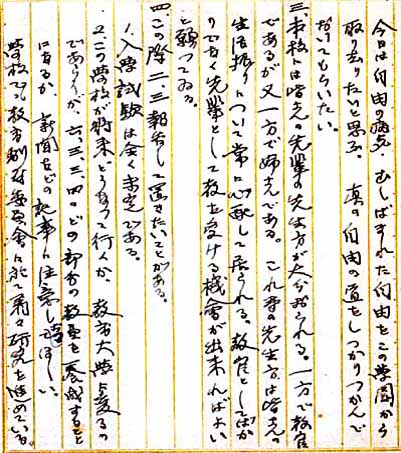 今日は自由の履き、むしばまれた自由をこの学園から
取り去りたいと思ふ。 真の自由の道をしっかりつかんで
ないてもらいたい。
三、本校には皆さんの先輩の先生方が大分居られる。一方で教官
であるが又一方で姉さんである。これ等の先生方は皆さんの
生活振りについて常に心配して居られる。教官としてばか
りでなく先輩として教を受ける機会が出来ればよい
と願ってゐる。
四、この際二、三報告して置きたいことがある。
1. 入学試験は全く未定である。
2. この学校が将来どうなって行くか、教育大学に変るの
であらうが、六、三、三、四のどの部分の教員を養成すること
になるか、新聞などの記事に注意してほしい。
学校でも教育制度委員会に於て着々研究を進めている。